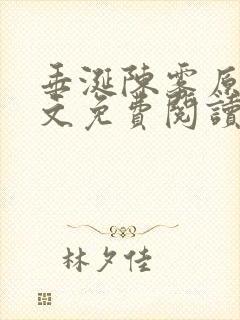 垂涎陳霧原
文免費閱讀
林夕佳